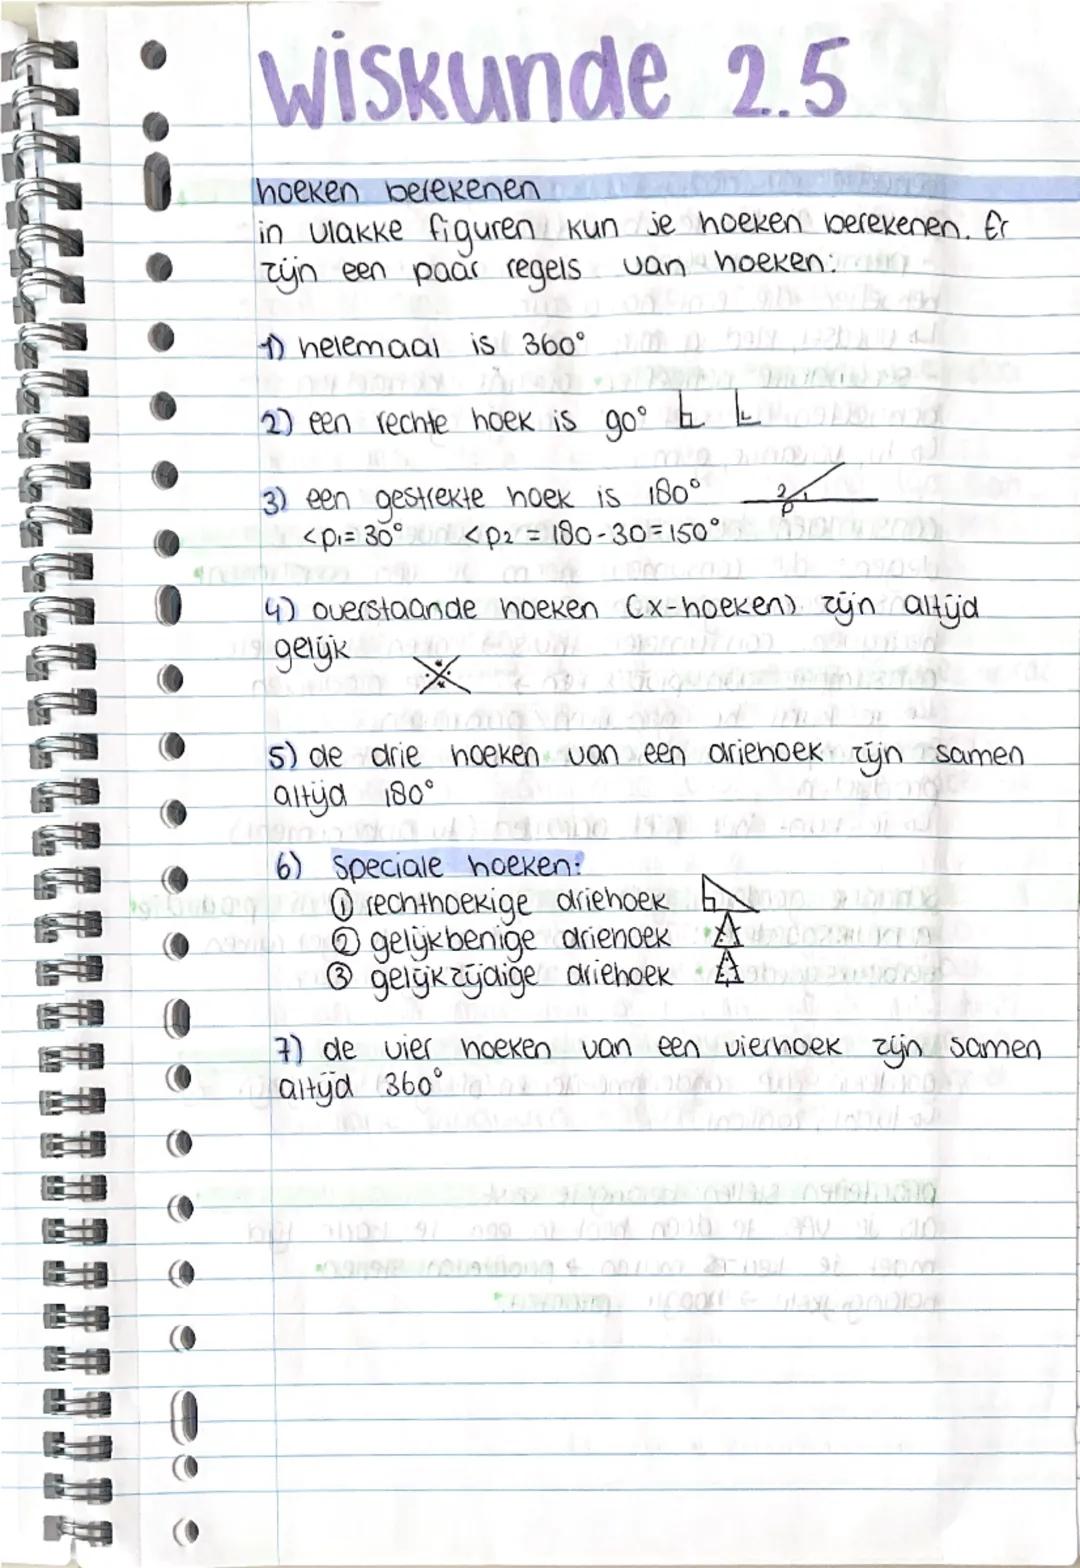 wiskunde 2.5
hoeken berekenen
in vlakke figuren kun je hoeken berekenen. Er
zijn een paar regels van hoeken:
1) helemaal is 360°
2) een rechte hoek is 90°
3) een gestrekte hoek is 180°
2 1
p
<p1=30° <p2 = 180-30=150°
4) overstaande hoeken (x-hoeken) zijn altijd
gelijk
5) de drie hoeken van een driehoek zijn samen
altijd 180°
6) Speciale hoeken:
① rechthoekige driehoek
② gelijkbenige driehoek
③ gelijkzijdige driehoek
7) de vier hoeken van een vierhoek zijn samen
altijd 360°